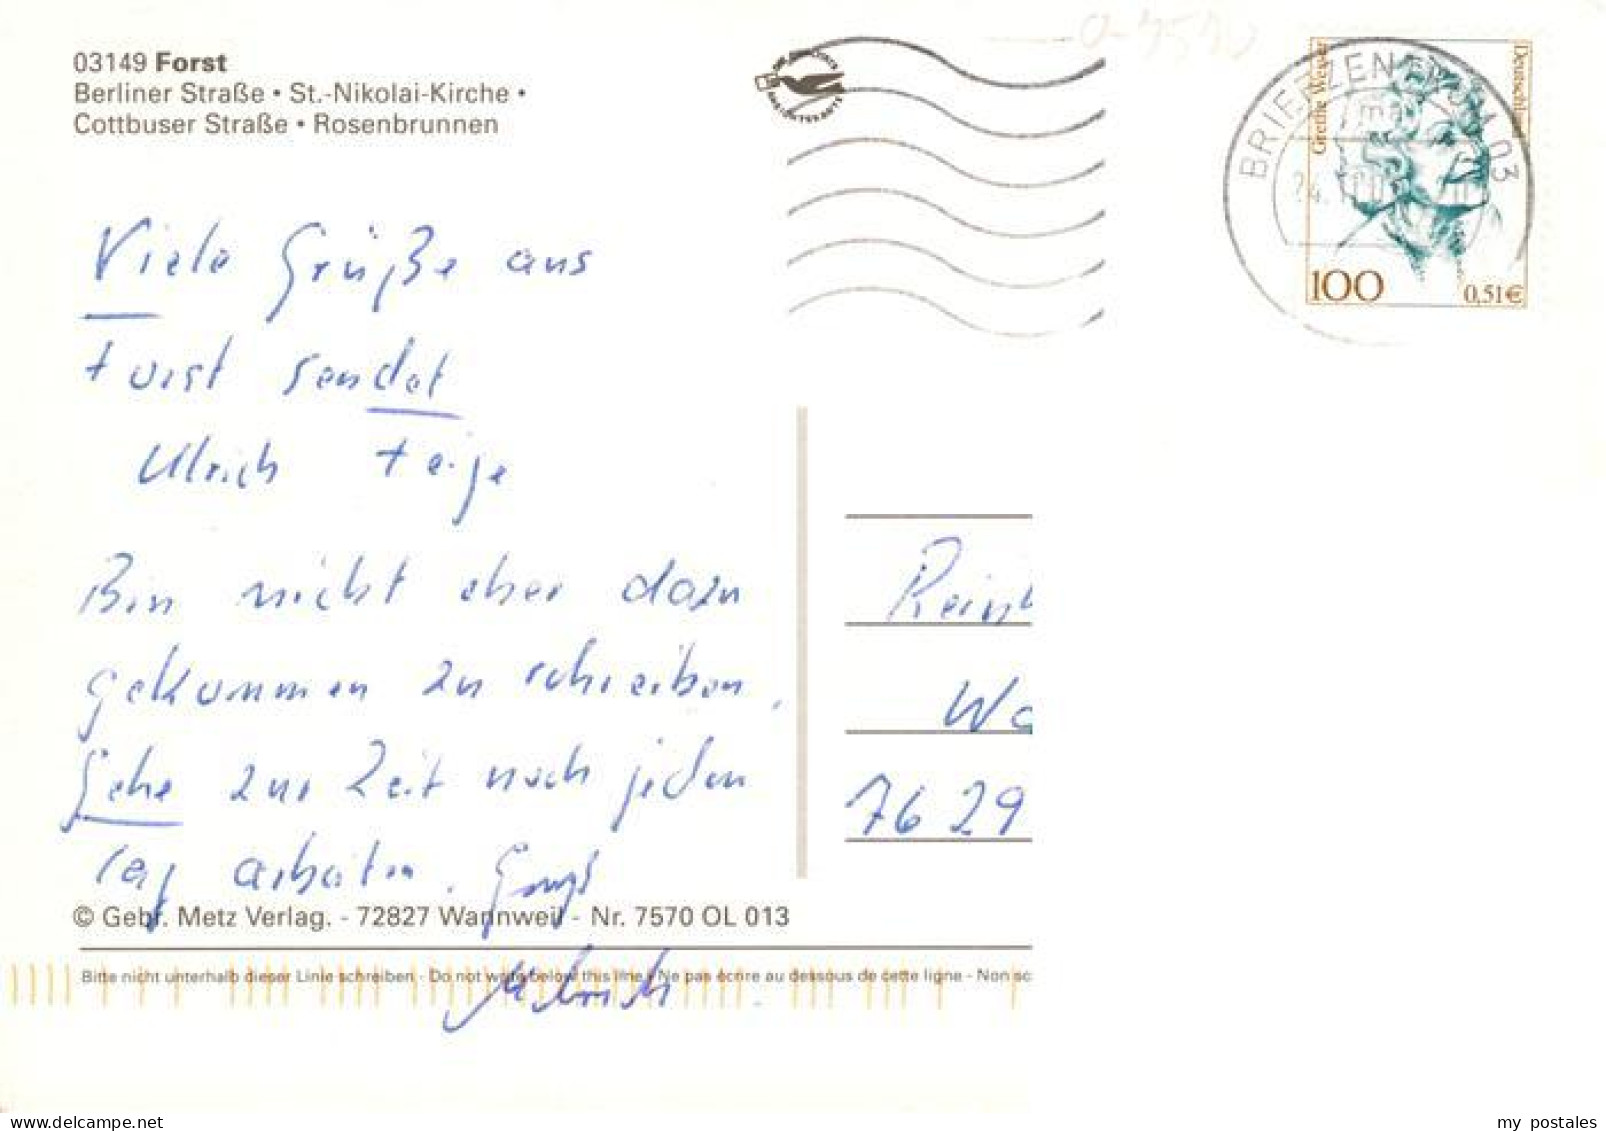 03149 Forst
Berliner Straße • St.-Nikolai-Kirche •
Cottbuser Straße • Rosenbrunnen
BRIEFZENTRUM 03
Grethe Weiser
Deutschland
100
0,51€
Viele Grüße aus
Forst sendet
Ulrich Feige
Bin nicht eher dazu
gekommen zu schreiben.
Gehe zur Zeit noch jeden
Tag arbeiten. Gruß
Ulrich
Rein
Wa
7629
© Gebr. Metz Verlag. - 72827 Wannweil - Nr. 7570 OL 013
Bitte nicht unterhalb dieser Linie schreiben - Do not write below this line - Ne pas écrire au dessous de cette ligne - Non sc
my postales